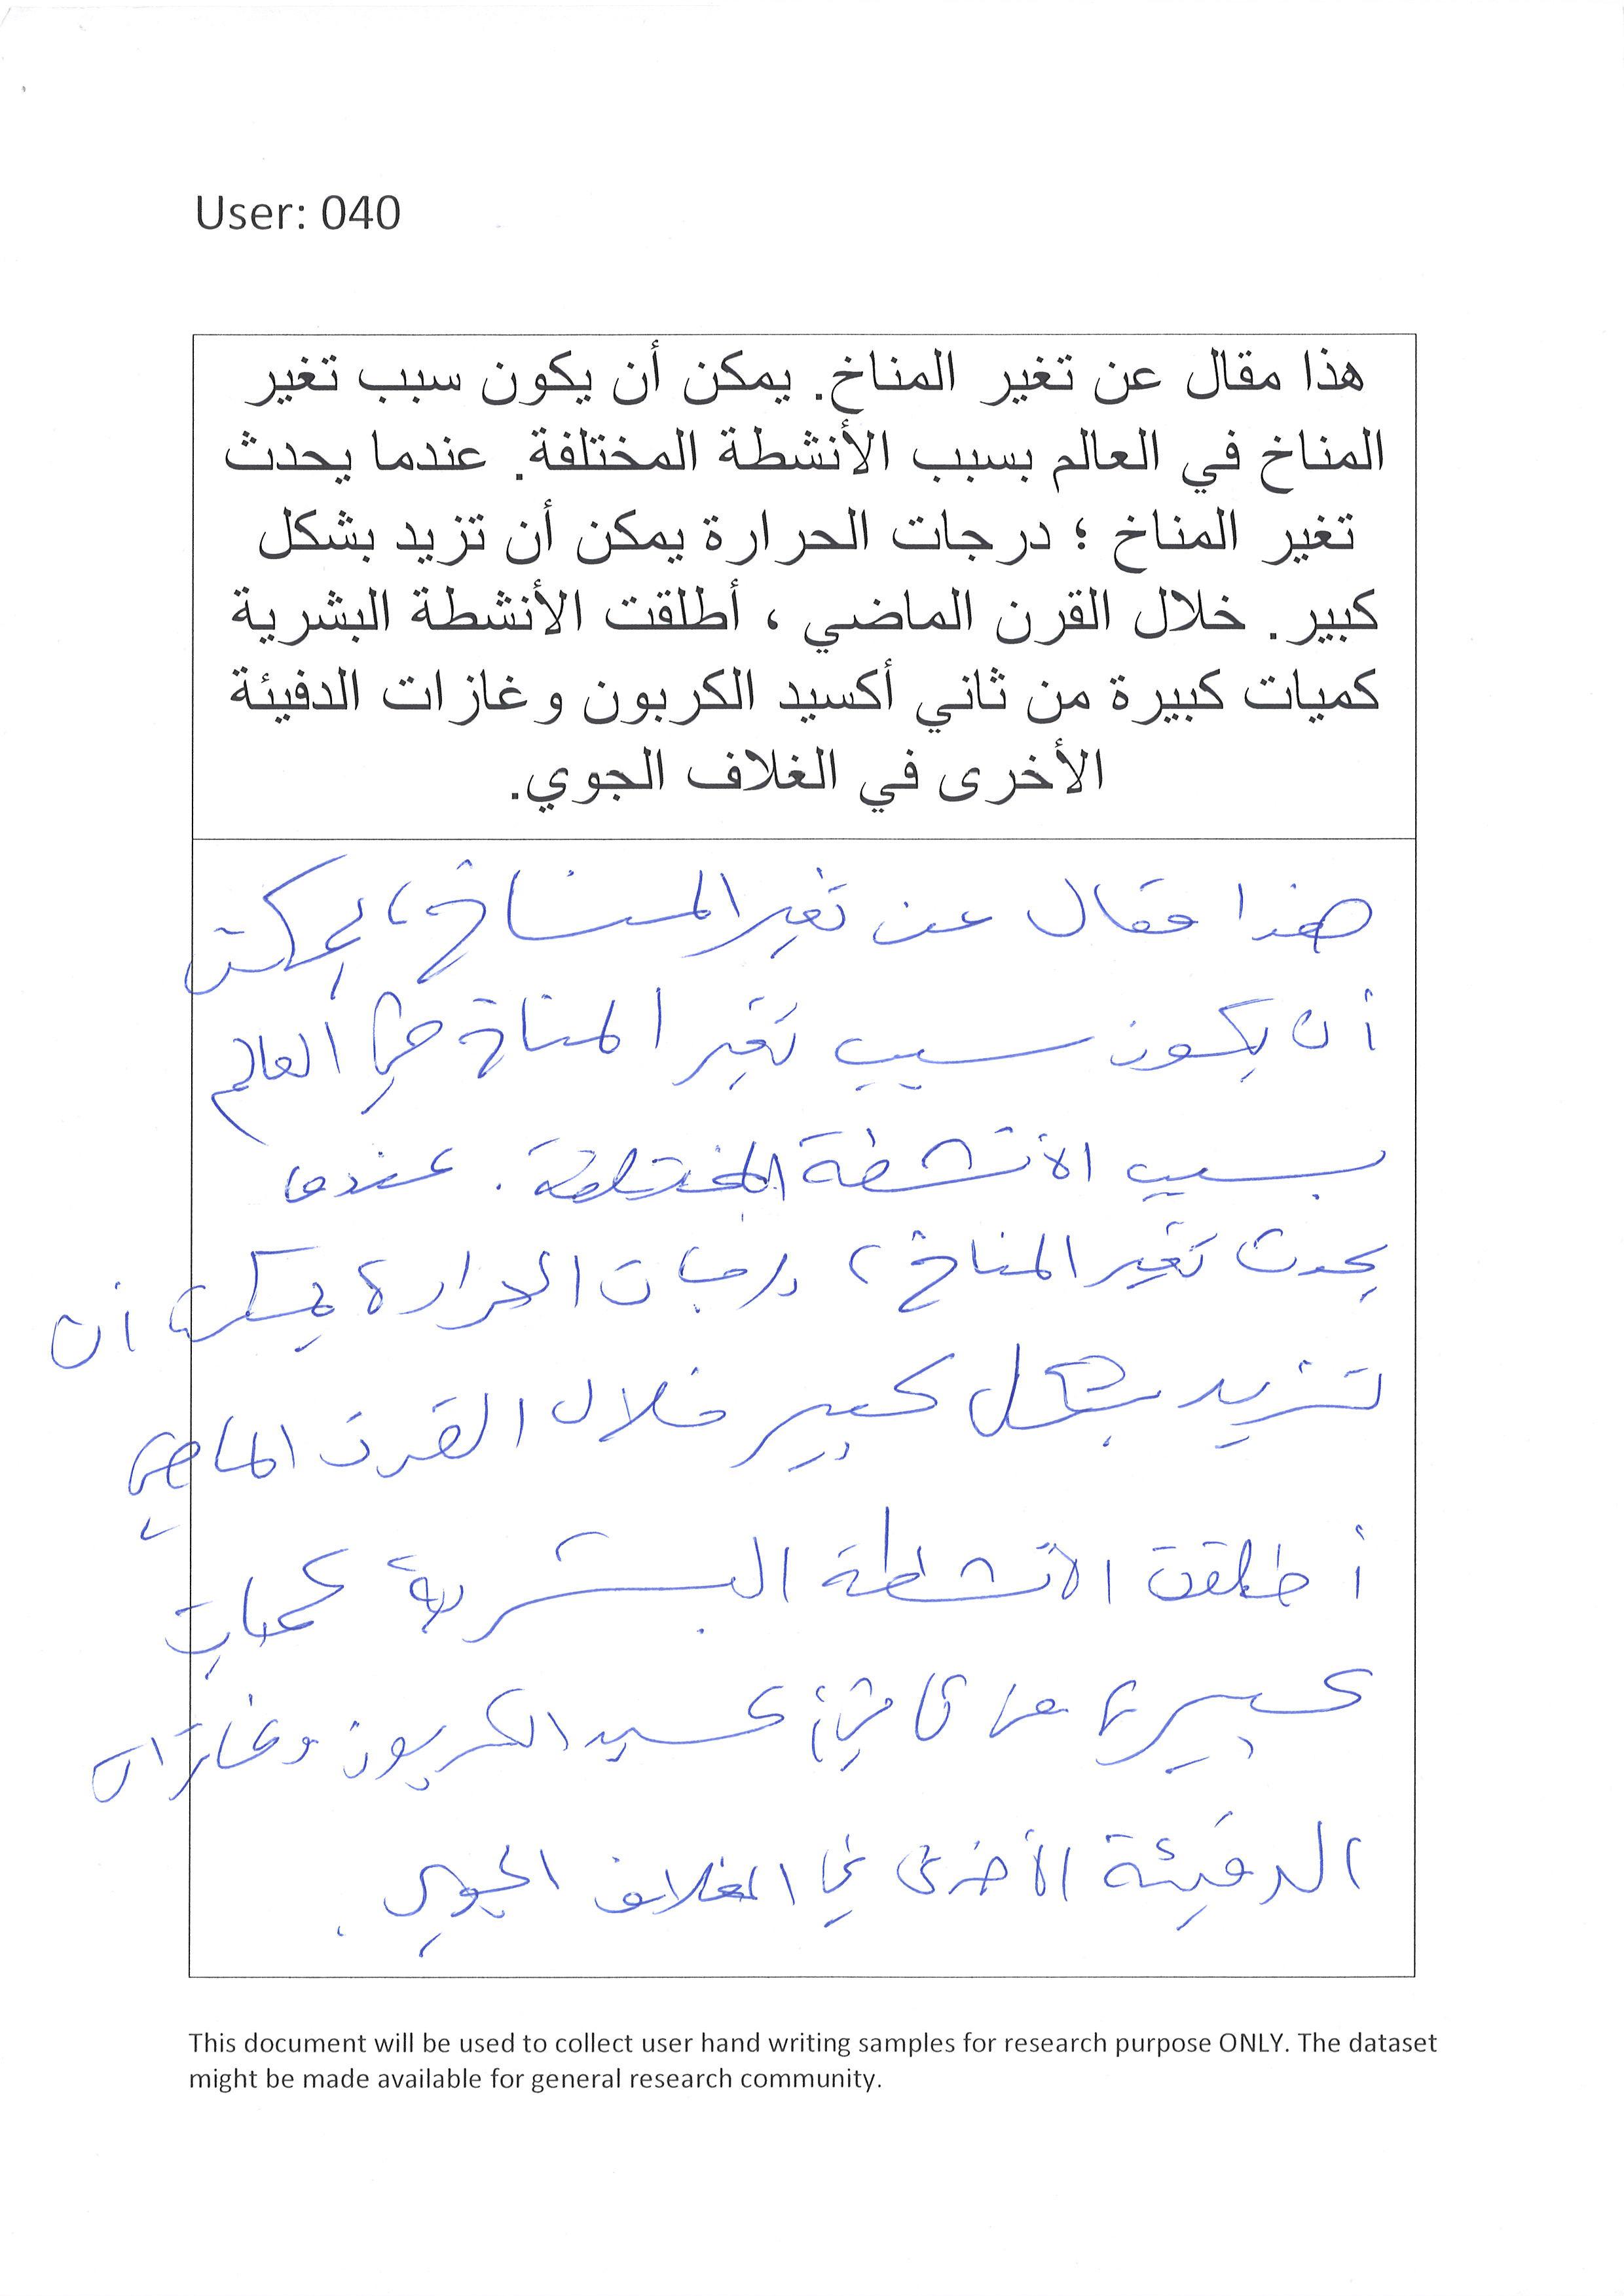 User: 040
هذا مقال عن تغير المناخ. يمكن أن يكون سبب تغير
المناخ في العالم بسبب الأنشطة المختلفة. عندما يحدث
تغير المناخ ؛ درجات الحرارة يمكن أن تزيد بشكل
كبير. خلال القرن الماضي ، أطلقت الأنشطة البشرية
كميات كبيرة من ثاني أكسيد الكربون وغازات الدفيئة
الأخرى في الغلاف الجوي.
هذا مقال عن تغير المناخ، يمكن
أن يكون سبب تغير المناخ في العالم
بسبب الأنشطة المختلفة. عندما
يحدث تغير المناخ، درجات الحرارة يمكن أن
تزيد بشكل كبير خلال القرن الماضي
أطلقت الأنشطة البشرية كميات
كبيرة من ثاني أكسيد الكربون وغازات
الدفيئة الأخرى في الغلاف الجوي.
This document will be used to collect user hand writing samples for research purpose ONLY. The dataset
might be made available for general research community.